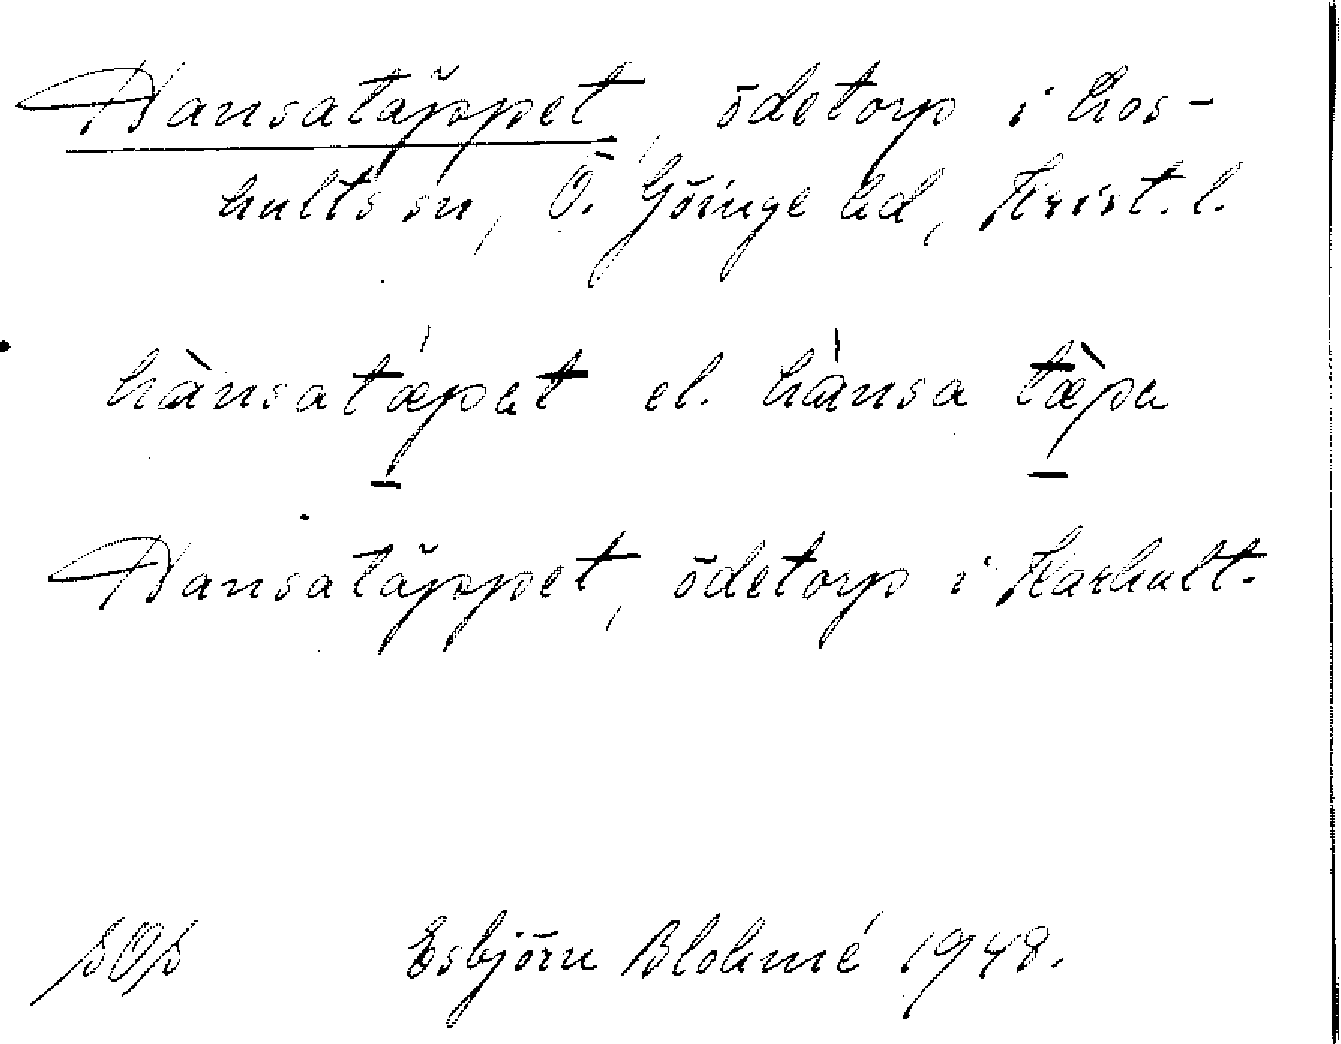 Hansatäppet, ödetorp i Los-
hults sn, Ö. Göinge hd, Krist. l.
hànsatæpet el. hànsa tæpe
Hansatäppet, ödetorp i Karhult.
Esbjörn Blohmé 1948.